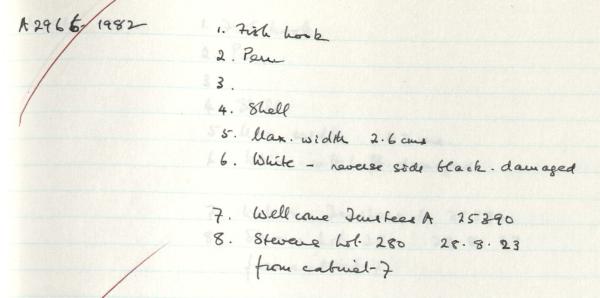 A2966-1982 1. Fish hook
2. Peru
3.
4. Shell
5. Max. width 2.6 cms
6. White - reverse side black. damaged
7. Wellcome Trustees A 25390
8. Stevens Lot. 280 28.8.23
from cabinet-7